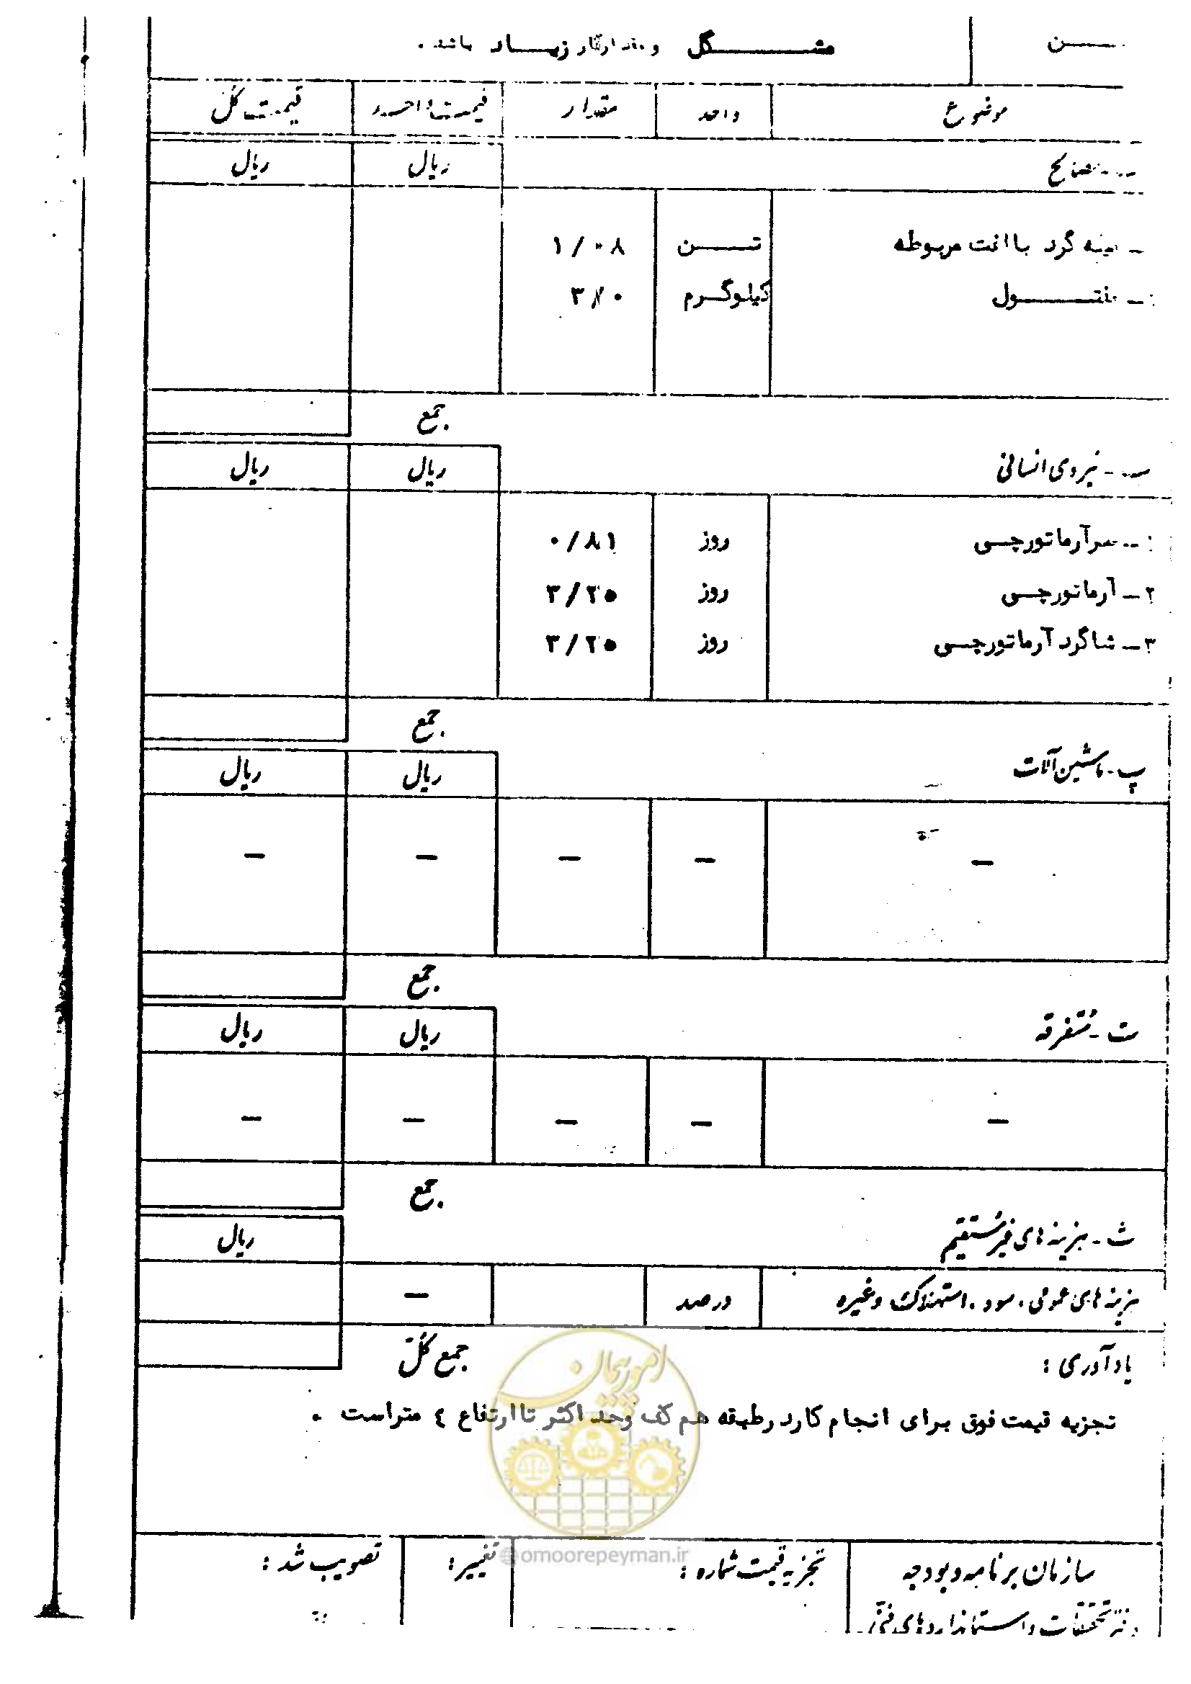 مشـــکل و مقدارکار زیـــاد باشد .
موضوع واحد مقدار قیمت واحد قیمت کل
مصالح ریال ریال
گرد با افت مربوطه تـــن ۱/۰۸
کیلوگـرم ۳/۰
جمع
نیروی انسانی ریال ریال
سرآرماتورچـی روز ۰/۸۱
۲ - آرماتورچـی روز ۳/۲۵
۳ - شاگرد آرماتورچـی روز ۳/۲۵
جمع
پ - ماشین آلات ریال ریال
— — — — —
جمع
ت - متفرقه ریال ریال
— — — — —
جمع
ث - هزینه های غیرمستقیم ریال
هزینه های عمومی ، سود ، استهلاک وغیره درصد —
یادآوری : جمع کل
تجزیه قیمت فوق برای انجام کاردرطبقه هم کف وحد اکثر تا ارتفاع ٤ متراست .
امور پیمان
@omoorepeyman.ir
سازمان برنامه وبودجه تجزیه قیمت شماره : تغییر : تصویب شد :
دفتر تحقیقات واستانداردهای فنی